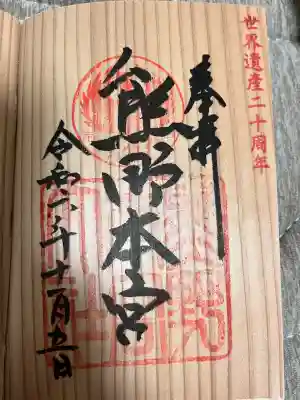 世界遺産二十周年
奉拝
熊野本宮
令和六年十一月五日